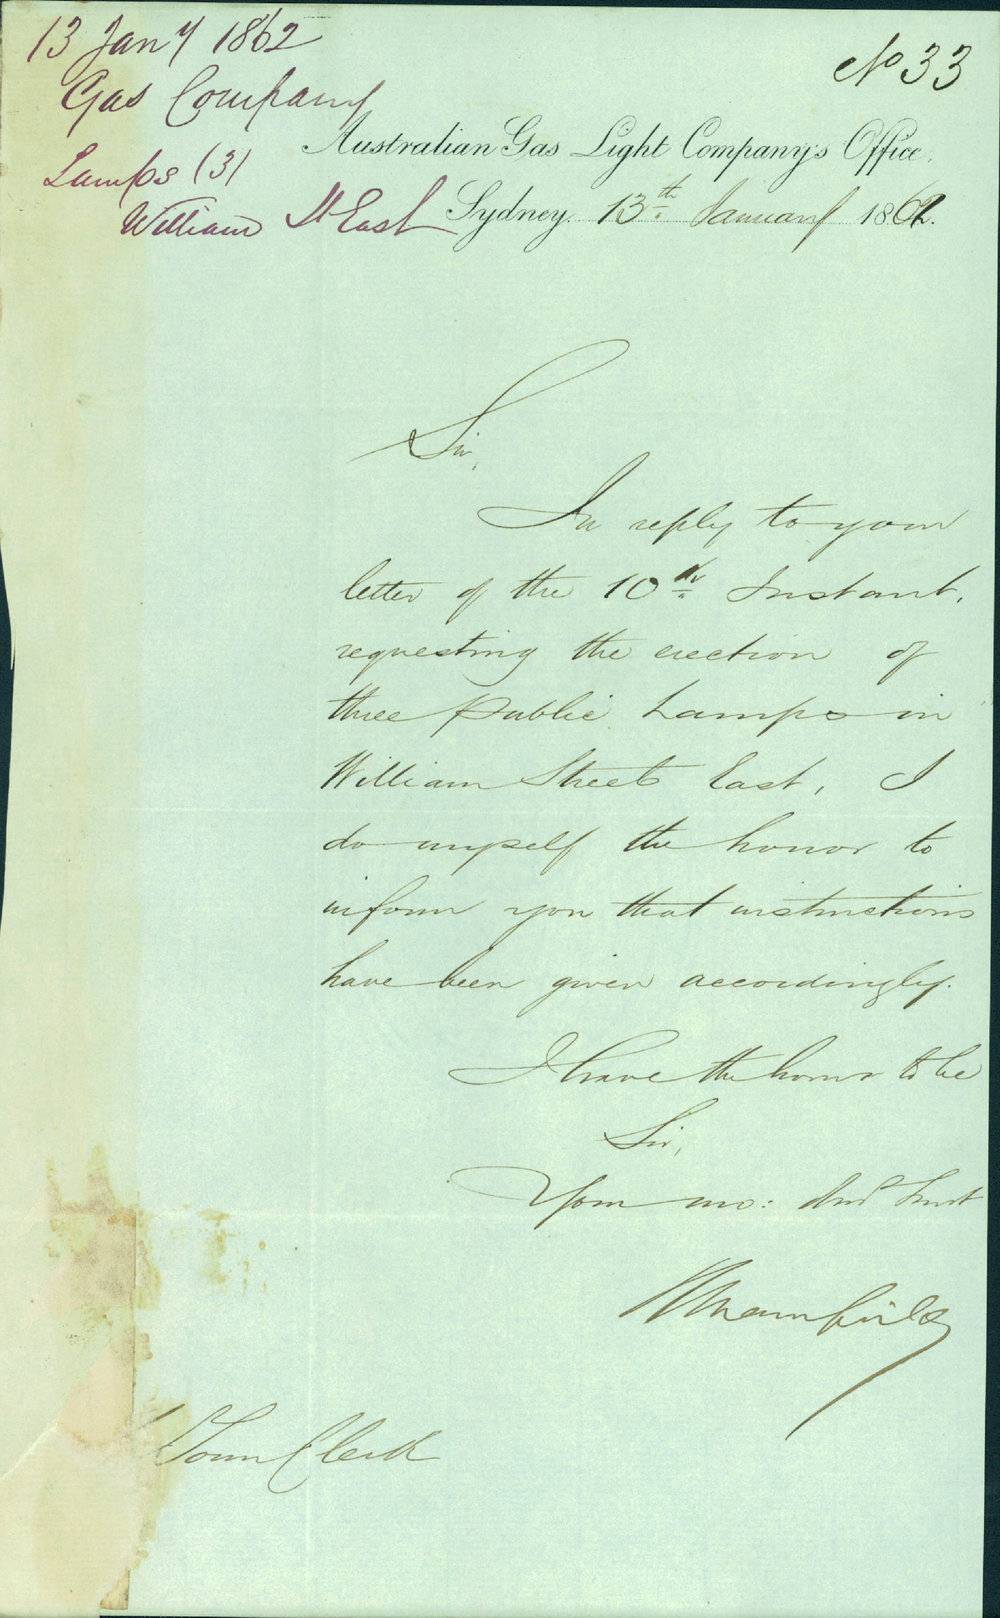 13 Jany 1862
Gas Company
Lamps (3)
William St East
No 33
Australian Gas Light Company's Office,
Sydney. 13th January 1862.
Sir,
In reply to your
letter of the 10th Instant,
requesting the erection of
three Public Lamps in
William Street East, I
do myself the honor to
inform you that instructions
have been given accordingly.
I have the honor to be
Sir,
Your mo: Obdt Servt
Town Clerk